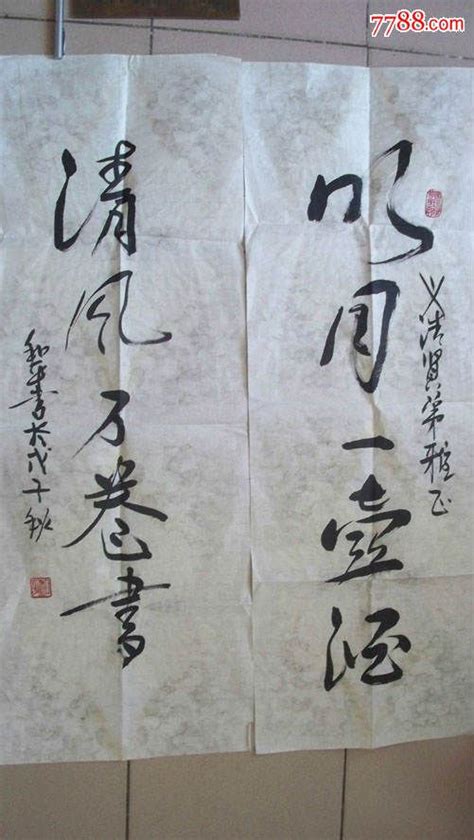 7788.com
明月一壶酒
义浩贤弟雅正
清风万卷书
书于戊子秋